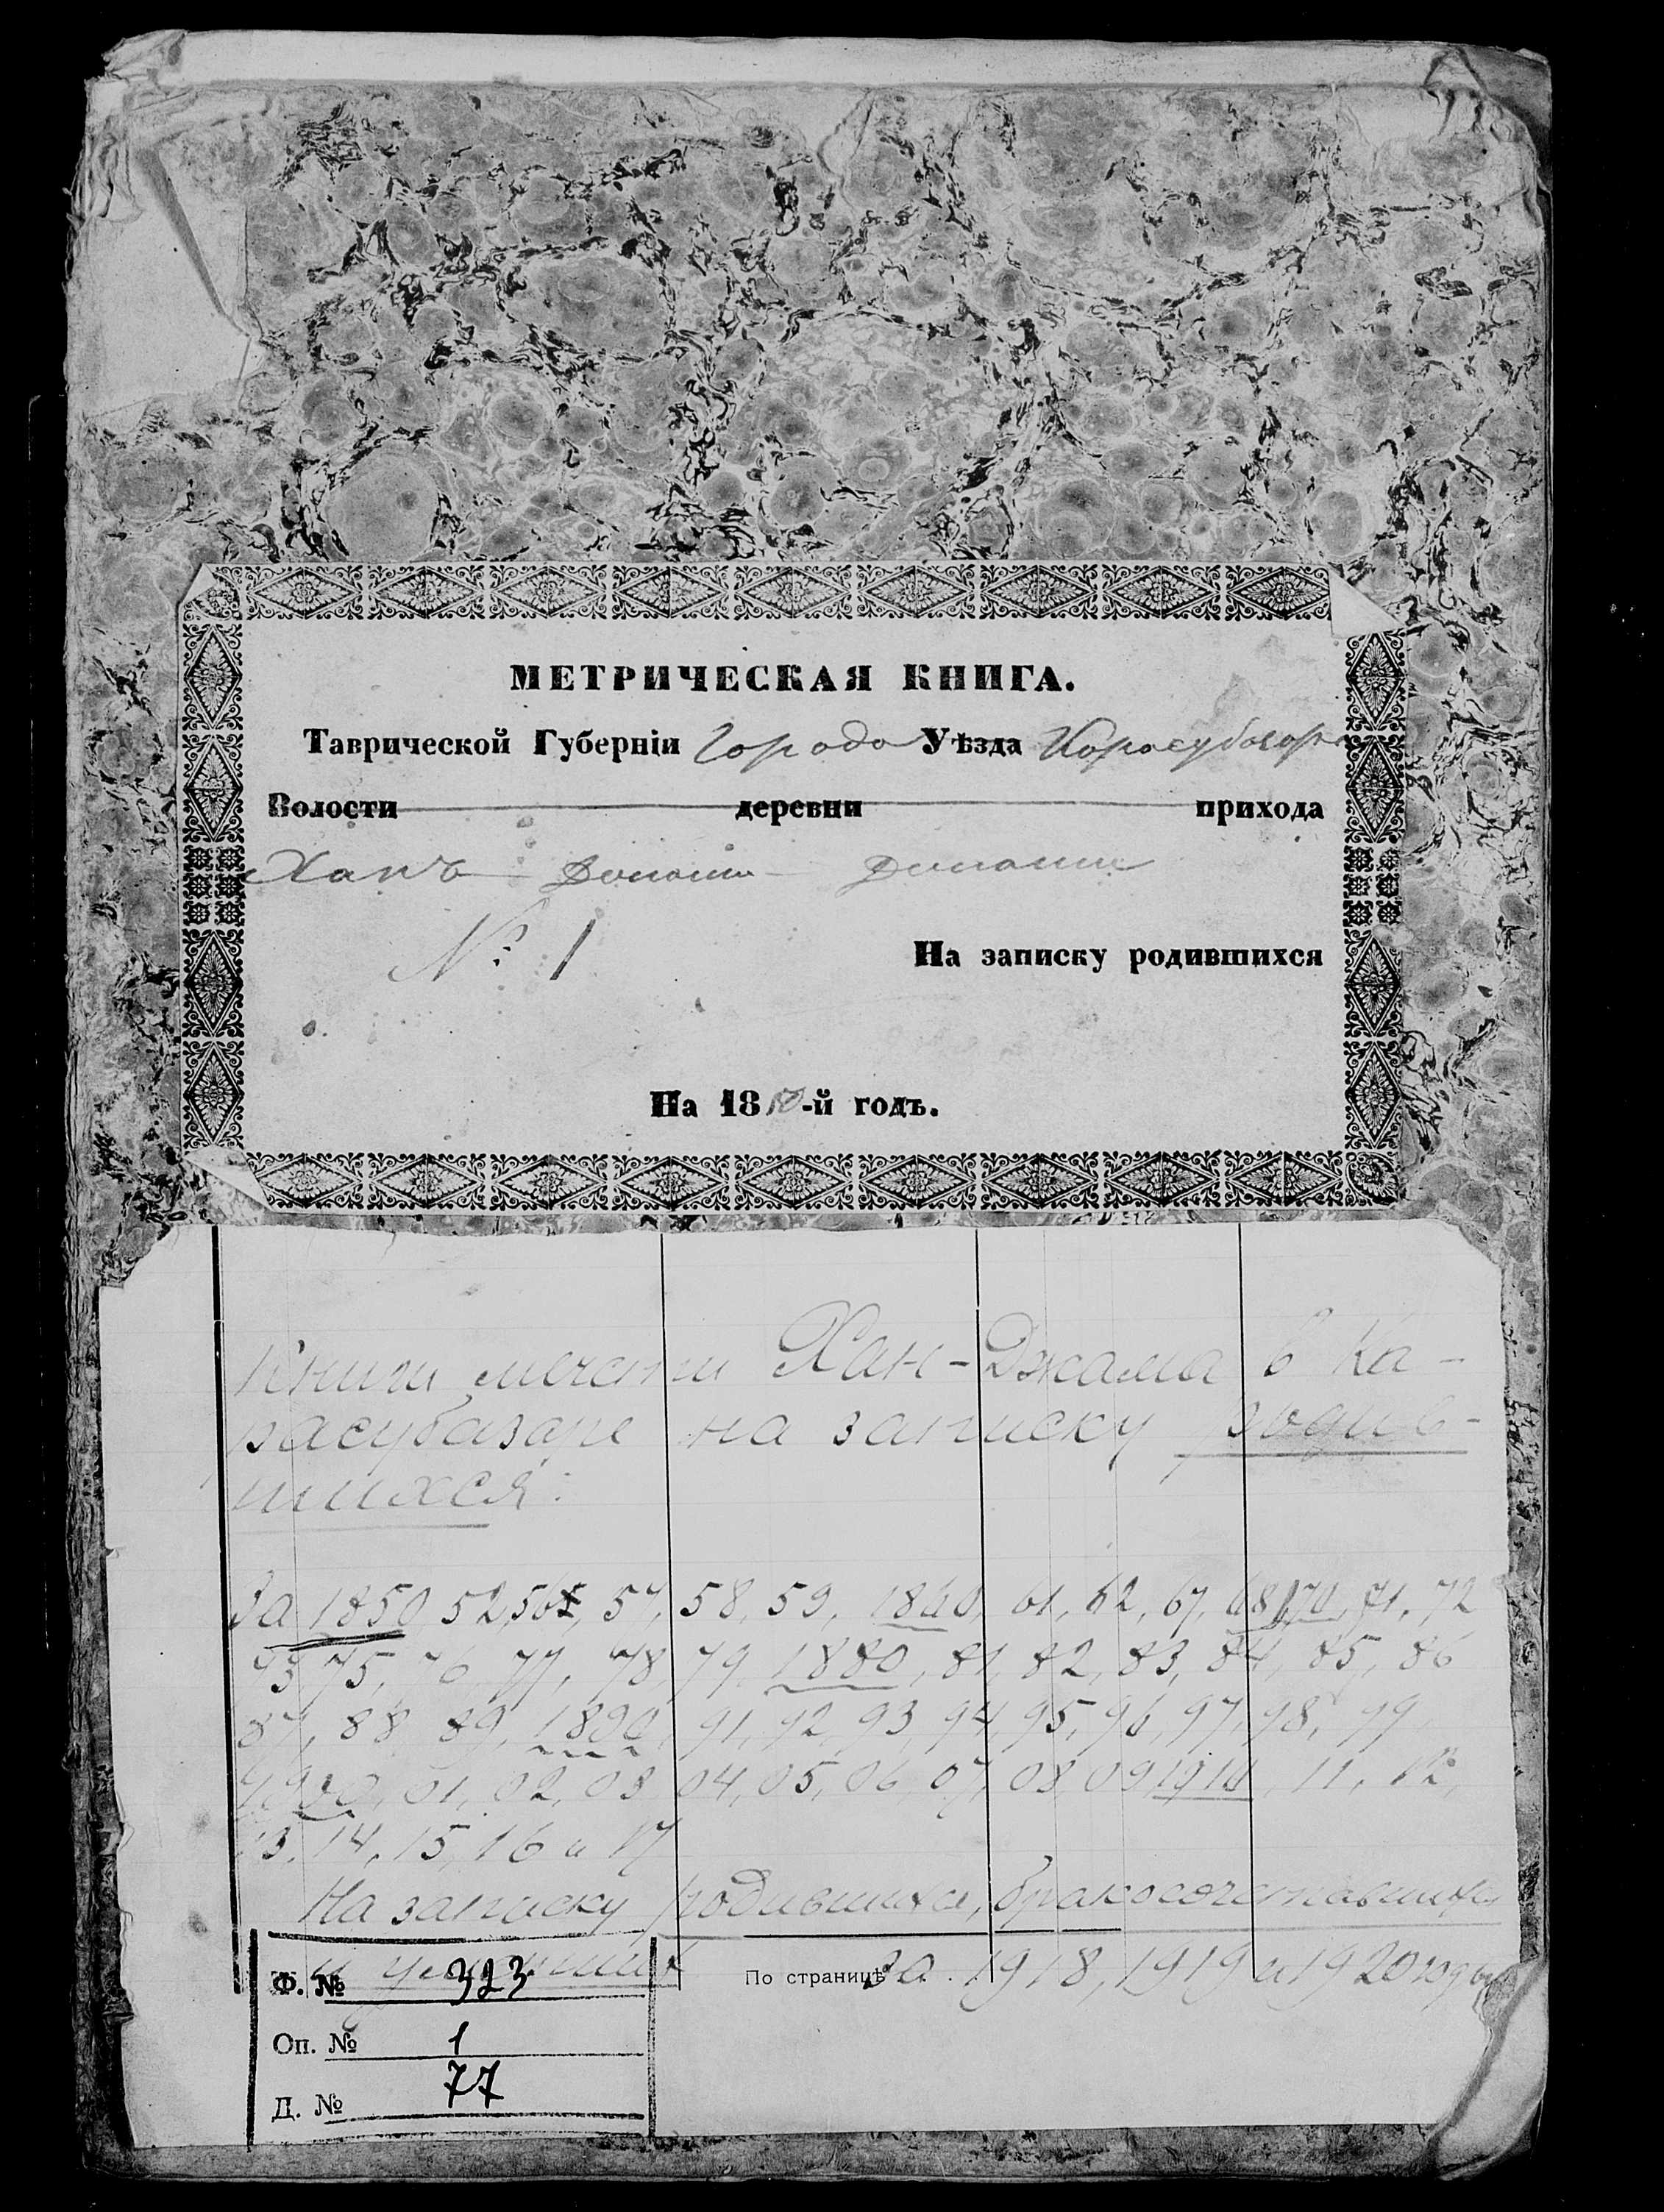 МЕТРИЧЕСКАЯ КНИГА.
Таврической Губерніи Города Уѣзда Карасубазара
Волости деревни прихода
Ханъ
№ 1
На записку родившихся
На 1850-й годъ.
Книги мечети Хан-Джама в Ка-
расубазаре на записку родив-
шихся:
За 1850, 52, 56, 57, 58, 59, 1860, 61, 62, 67, 68, 70, 71, 72
73 75, 76, 77, 78, 79, 1880, 81, 82, 83, 84, 85, 86
87, 88, 89, 1890, 91, 92, 93, 94, 95, 96, 97, 98, 99
1900, 01, 02, 03, 04, 05, 06, 07, 08, 09, 1910, 11, 12,
13, 14, 15, 16 и 17
На записку родившихся, бракосочетавшихся
и умерших за 1918, 1919 и 1920 годы
По страницѣ
Ф. № 323
Оп. № 1
Д. № 77